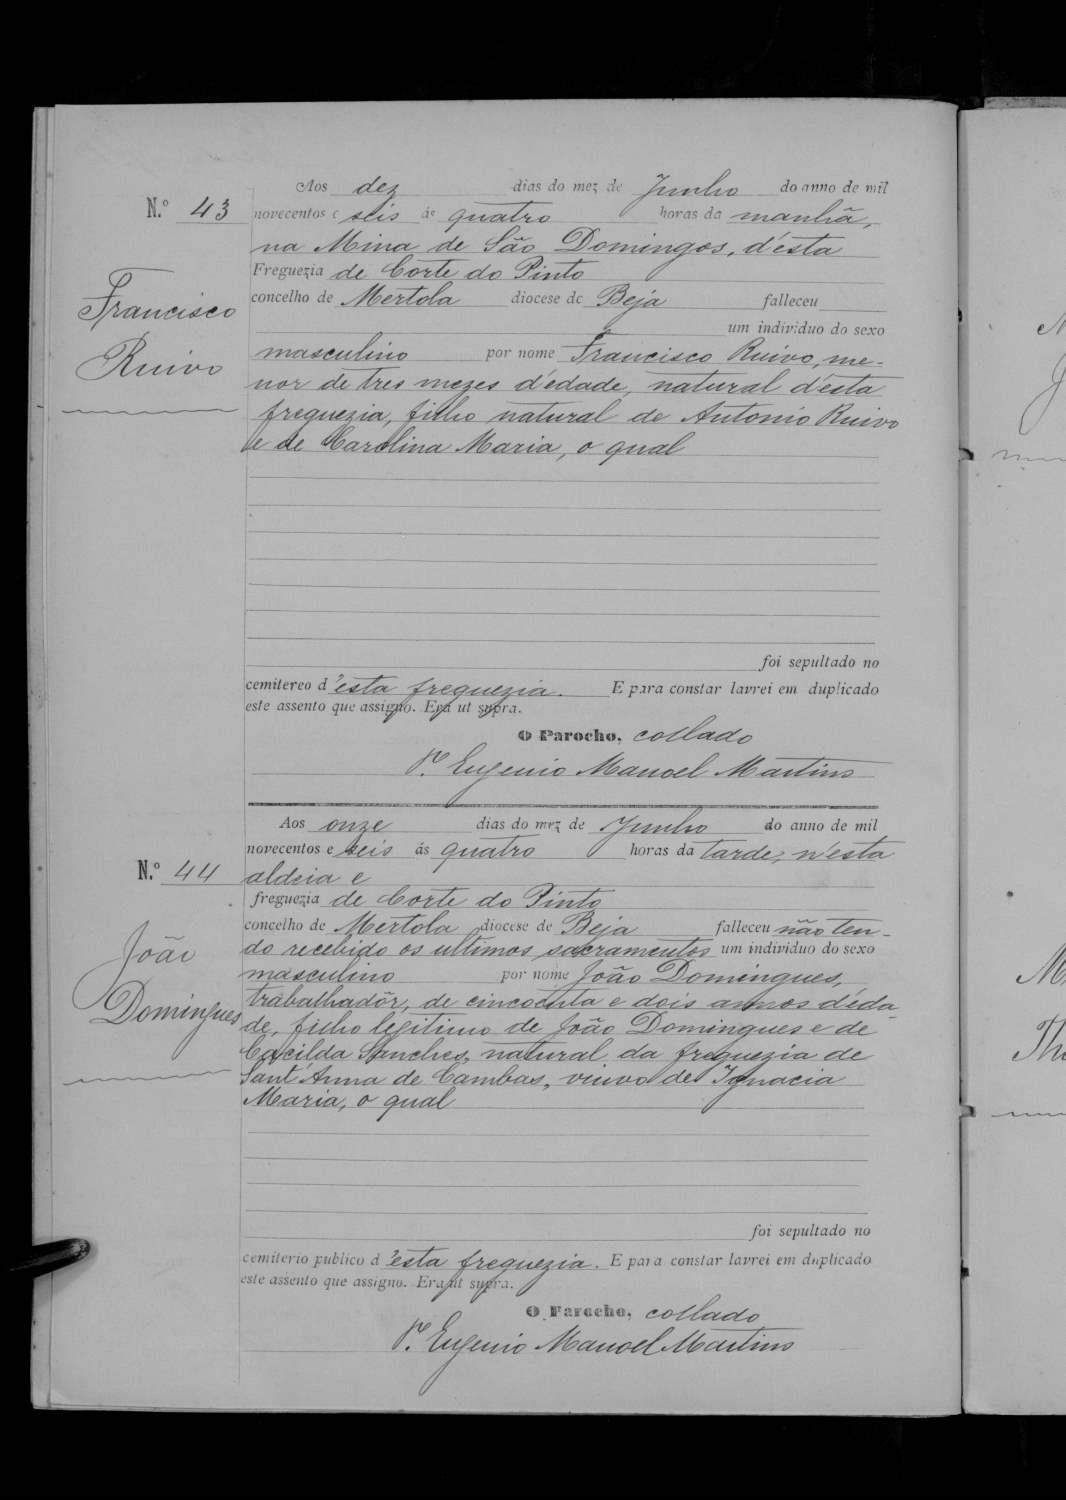 Aos dez dias do mez de Junho do anno de mil
N.º 43
novecentos e seis ás quatro horas da manhã,
na Mina de São Domingos, d'ésta
Freguezia de Corte do Pinto
concelho de Mertola diocese de Beja falleceu
um individuo do sexo
Francisco
Ruivo
masculino por nome Francisco Ruivo, me-
nor de tres mezes d'édade, natural d'ésta
freguezia, filho natural de Antonio Ruivo
e de Carolina Maria, o qual
foi sepultado no
cemitereo d'ésta freguezia. E para constar lavrei em duplicado
este assento que assigno. Era ut supra.
O Parocho, collado
P.e Eugenio Manoel Martins
Aos onze dias do mez de Junho do anno de mil
novecentos e seis ás quatro horas da tarde, n'ésta
N.º 44
aldeia e
freguezia de Corte do Pinto
concelho de Mertola diocese de Beja falleceu não ten-
do recebido os ultimos sacramentos um individuo do sexo
João
Domingues
masculino por nome João Domingues,
trabalhadôr, de cincoenta e dois annos d'éda-
de, filho legitimo de João Domingues e de
Cacilda Sanches, natural da freguezia de
Sant'Anna de Cambas, viuvo de Ignacia
Maria, o qual
foi sepultado no
cemiterio publico d'ésta freguezia. E para constar lavrei em duplicado
este assento que assigno. Era ut supra.
O Parocho, collado
P.e Eugenio Manoel Martins